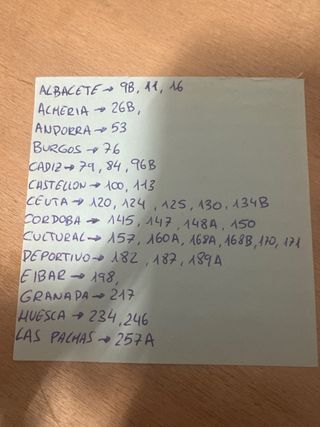 ALBACETE → 9B, 11, 16
ALMERIA → 26B,
ANDORRA → 53
BURGOS → 76
CADIZ → 79, 84, 96B
CASTELLON → 100, 113
CEUTA → 120, 124, 125, 130, 134B
CORDOBA → 145, 147, 148A, 150
CULTURAL → 157, 160A, 168A, 168B, 170, 171
DEPORTIVO → 182, 187, 189A
EIBAR → 198,
GRANADA → 217
HUESCA → 234, 246
LAS PALMAS → 257A